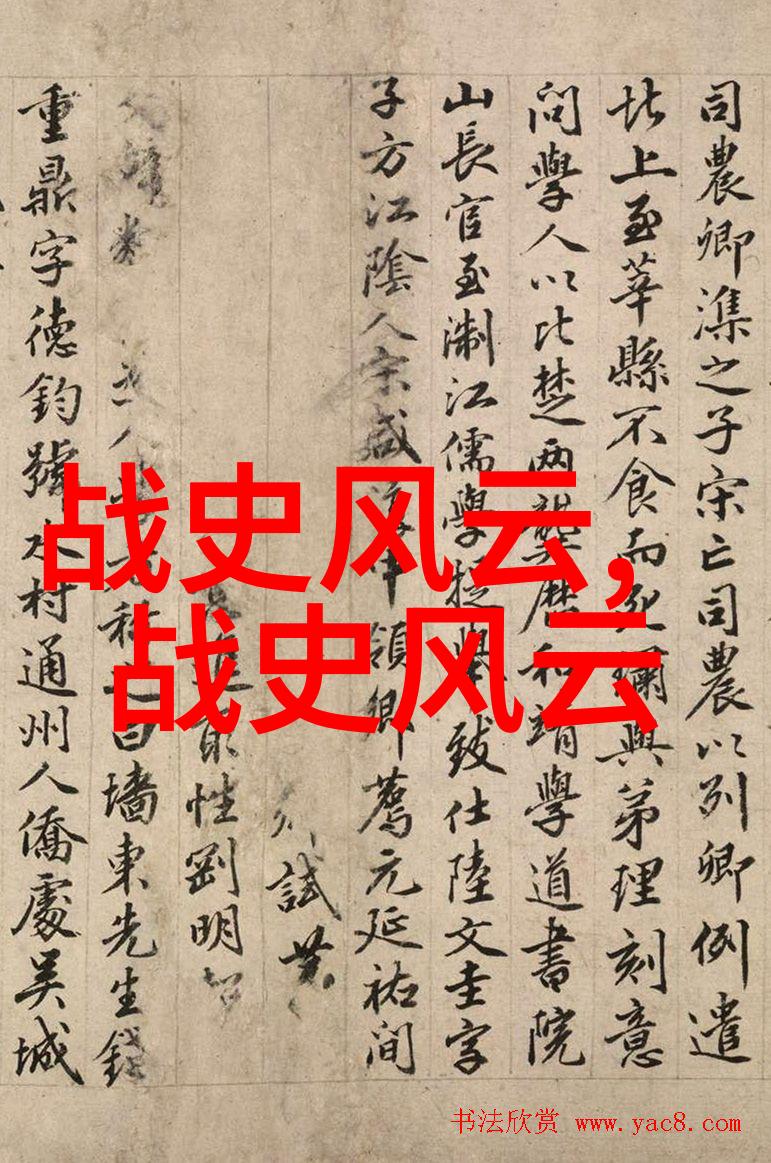 司農卿潗之子宋亡司農以列卿例遣
北上至莘縣不食而死璛與弟理刻意
問學人以比楚两龔歷和靖學道書院
山長官至淛江儒學提舉致仕陸文圭字
子方江陰人宋咸淳中領鄉薦元延祐間
試
進取性劉明
人學者称之曰墻東先生錢
重鼎字德鈞號水村通州人僑處吳城
战史风云,
战史风云
书法欣赏 www.yac8.com